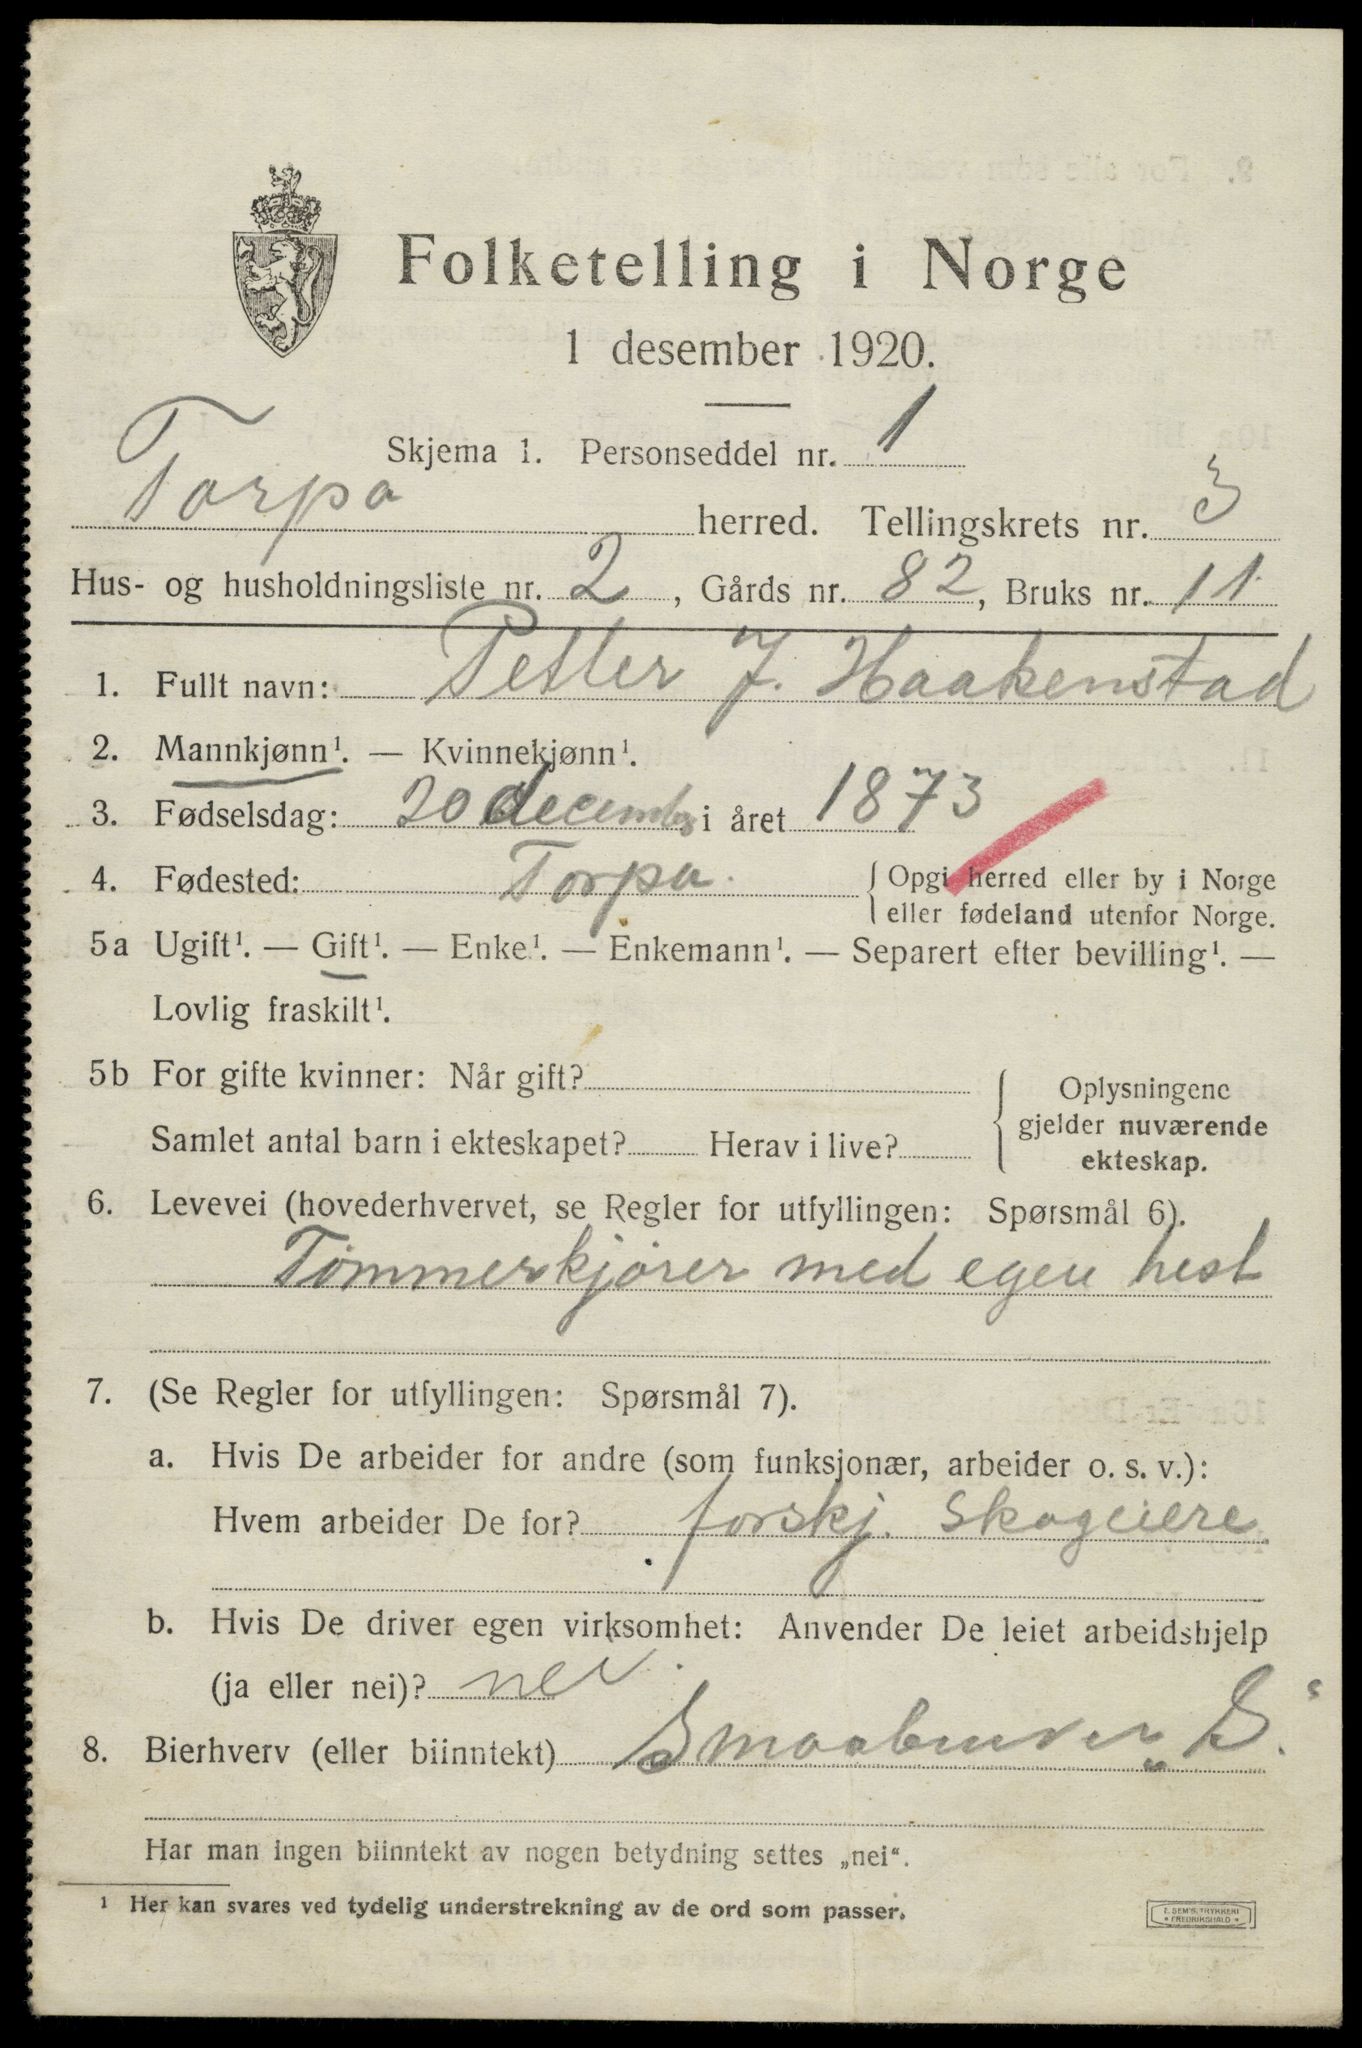 Folketelling i Norge
1 desember 1920.
Skjema 1. Personseddel nr. 1
Torpa herred. Tellingskrets nr. 3
Hus- og husholdningsliste nr. 2, Gårds nr. 82, Bruks nr. 11
1. Fullt navn: Petter J. Haakenstad
2. Mannkjønn¹. — Kvinnekjønn¹.
3. Fødselsdag: 20 december i året 1873
4. Fødested: Torpa. { Opgi herred eller by i Norge
eller fødeland utenfor Norge.
5a Ugift¹. — Gift¹. — Enke¹. — Enkemann¹. — Separert efter bevilling¹. —
Lovlig fraskilt¹.
5b For gifte kvinner: Når gift? { Oplysningene
gjelder nuværende
Samlet antal barn i ekteskapet? Herav i live?
ekteskap.
6. Levevei (hovederhvervet, se Regler for utfyllingen: Spørsmål 6).
Tømmerkjører med egen hest
7. (Se Regler for utfyllingen: Spørsmål 7).
a. Hvis De arbeider for andre (som funksjonær, arbeider o. s. v.):
Hvem arbeider De for? forskj. Skogeiere
b. Hvis De driver egen virksomhet: Anvender De leiet arbeidshjelp
(ja eller nei)? nei.
8. Bierhverv (eller biinntekt) Smaabruker „S.“
Har man ingen biinntekt av nogen betydning settes „nei“.
¹ Her kan svares ved tydelig understrekning av de ord som passer.
E. SEM'S TRYKKERI
• FREDRIKSHALD •